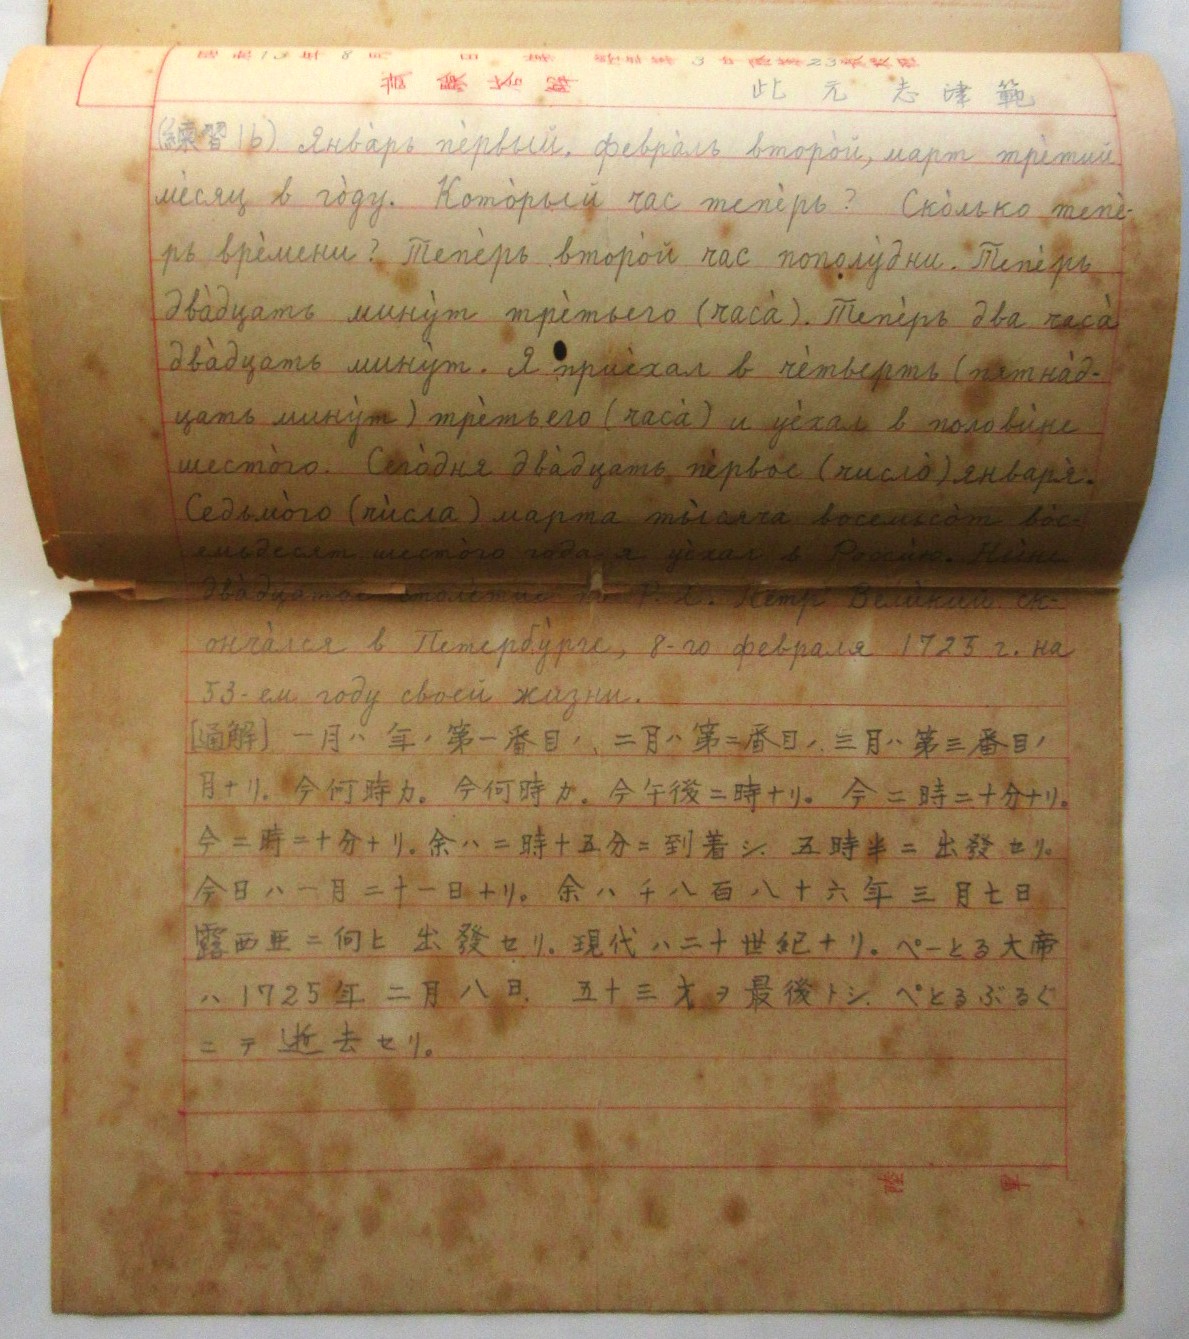 試驗答解
此元志津範
(練習16) Янва̀рь пѐрвый, февра̀ль второ̀й, март трѐтий
мѐсяц в го̀ду. Кото̀рый час тепѐрь? Ско̀лько тепѐ-
рь врѐмени? Тепѐрь второ̀й час пополу̀дни. Тепѐрь
два̀дцать мину̀т трѐтьего (часа̀). Тепѐрь два часа̀
два̀дцать мину̀т. Я приѐхал в чѐтверть (пятна̀д-
цать мину̀т) трѐтьего (часа̀) и уѐхал в полови̇не
шесто̀го. Сего̀дня два̀дцать пѐрвое (число̀) января̀.
Седьмо̀го (чѝсла) марта ты̀сяча восемьсо̀т во̀с-
емьдесят шесто̀го года я уѐхал в Россѝю. Ны̀не
два̀дцатое столѐтие Р. Х. Петр Велѝкий ск-
онча̀лся в Петербу̀рге, 8-го февраля 1725 г. на
53-ем году своей жизни.
[通解] 一月ハ年ノ第一番目ノ、二月ハ第二番目ノ、三月ハ第三番目ノ
月ナリ。今何時カ。今何時カ。今午後二時ナリ。今二時二十分ナリ。
今二時二十分ナリ。余ハ二時十五分ニ到着シ、五時半ニ出發セリ。
今日ハ一月二十一日ナリ。余ハ千八百八十六年三月七日
露西亜ニ向ヒ出發セリ。現代ハ二十世紀ナリ。ぺーとる大帝
ハ1725年二月八日、五十三才ヲ最後トシ、ぺとるぶるぐ
ニテ逝去セリ。
陸 軍